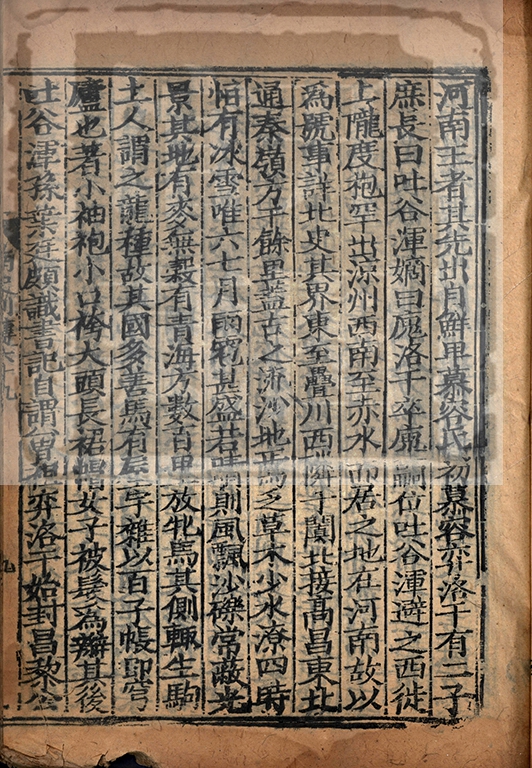 河南王者其先出自鮮卑慕容氏初慕容弈洛干有二子
庶長曰吐谷渾嫡曰廆洛干卒廆嗣位吐谷渾避之西徙
上隴度枹罕出涼州西南至赤水而居之地在河南故以
為號事詳北史其界東至疊川西隣于闐北接高昌東北
通秦嶺方千餘里蓋古之流沙地焉乏草木少水潦四時
恒有冰雪唯六七月雨雹甚盛若晴則風飄沙礫常蔽光
景其地有麥無穀有青海方數百里放牝馬其側輒生駒
土人謂之龍種故其國多善馬有屋宇雜以百子帳即穹
廬也著小袖袍小口袴大頭長裙帽女子被髮為辮其後
吐谷渾孫葉延頗識書記自謂曾祖弈洛干始封昌黎公